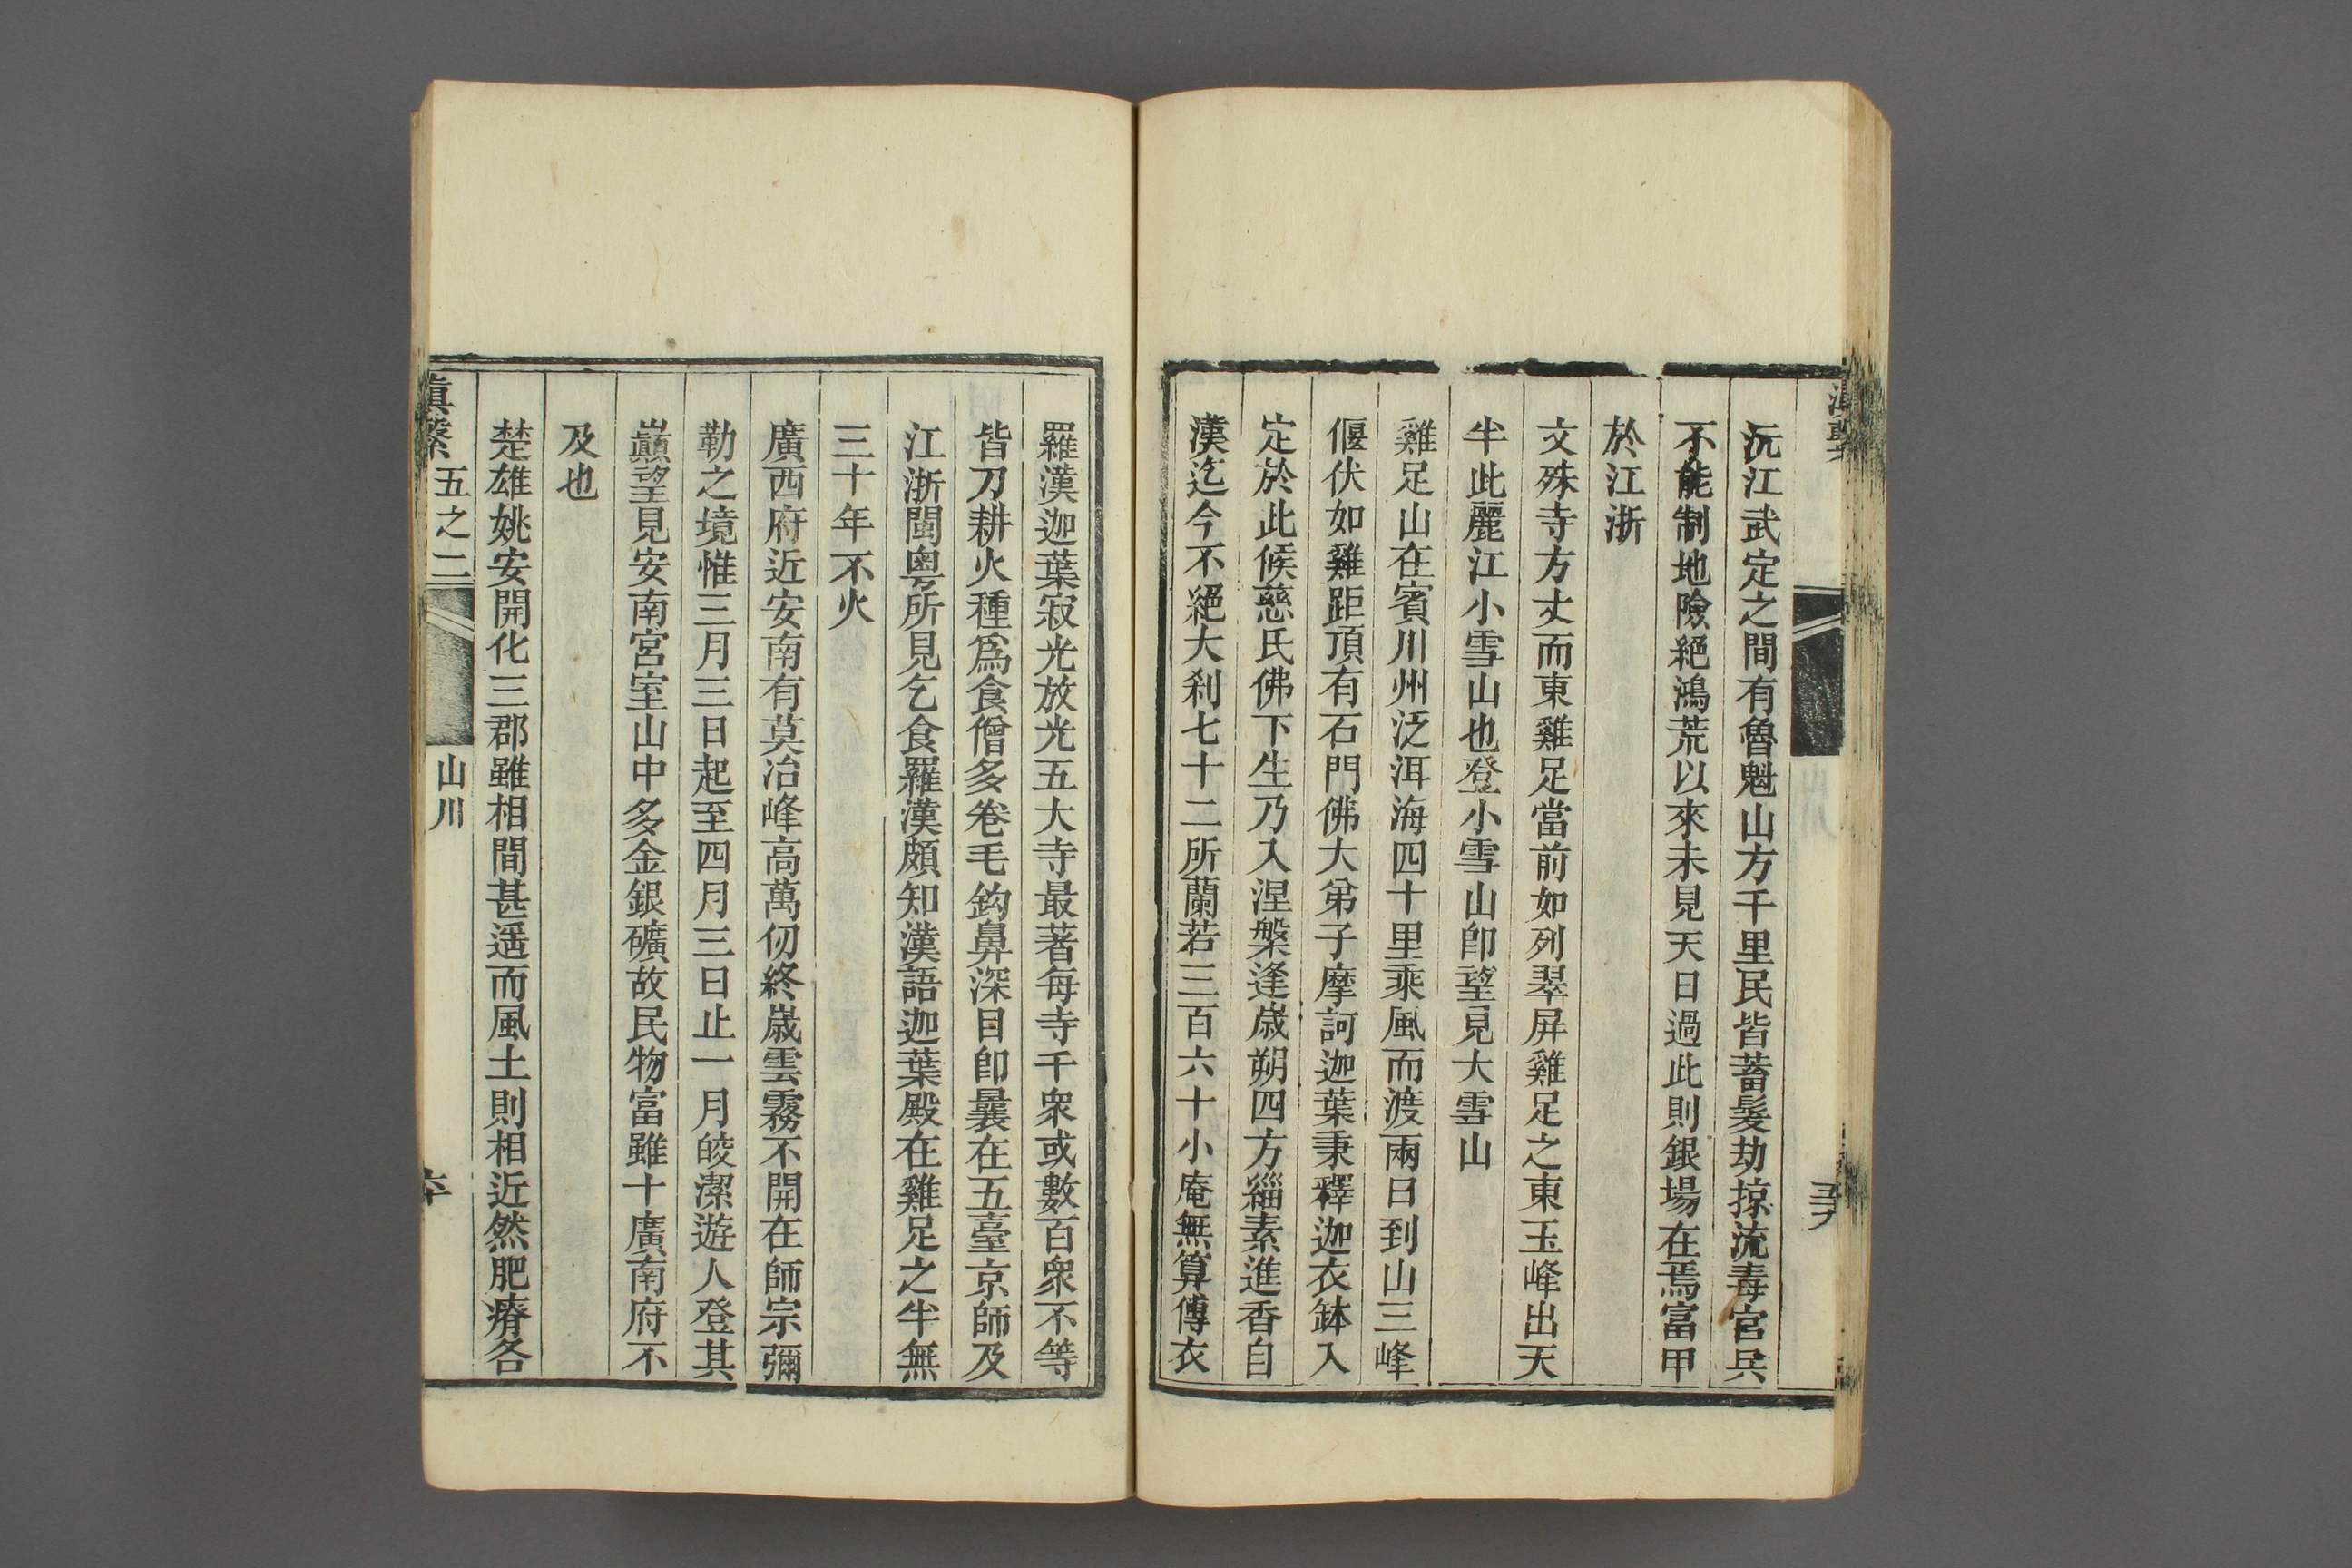 沅江武定之間有魯魁山方千里民皆蓄髮劫掠流毒官兵
不能制地險絕鴻荒以來未見天日過此則銀場在焉富甲
於江浙
文殊寺方丈而東雞足當前如列翠屏雞足之東玉峰出天
半此麗江小雪山也登小雪山卽望見大雪山
雞足山在賓川州泛洱海四十里乘風而渡兩日到山三峰
偃伏如雞距頂有石門佛大弟子摩訶迦葉秉釋迦衣鉢入
定於此候慈氏佛下生乃入涅槃逢歲朔四方緇素進香自
漢迄今不絕大刹七十二所蘭若三百六十小庵無算傳衣
羅漢迦葉寂光放光五大寺最著每寺千衆或數百衆不等
皆刀耕火種爲食僧多卷毛鈎鼻深目卽曩在五臺京師及
江浙閩粵所見乞食羅漢頗知漢語迦葉殿在雞足之半無
三十年不火
廣西府近安南有莫冶峰高萬仞終歲雲霧不開在師宗彌
勒之境惟三月三日起至四月三日止一月皎潔遊人登其
巔望見安南宮室山中多金銀礦故民物富雖十廣南府不
及也
楚雄姚安開化三郡雖相間甚遥而風土則相近然肥瘠各
滇繫 五之二 山川 六十